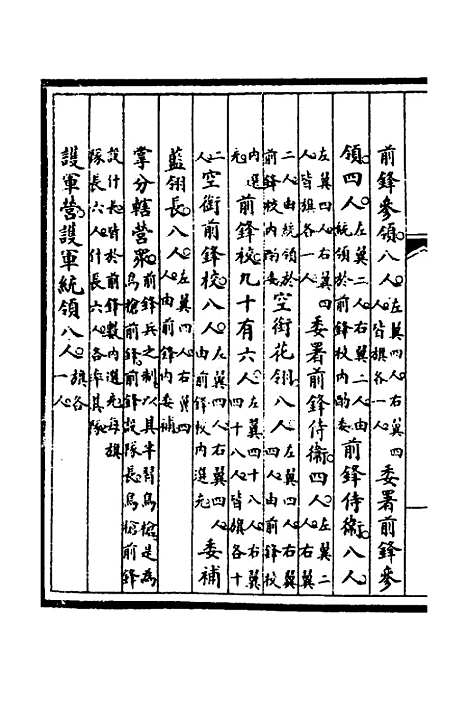 前鋒參領八人左翼四人右翼四人皆旗各一人委署前鋒參
領四人左翼二人右翼二人由統領於前鋒校内酌委前鋒侍衛八人
左翼四人右翼四人皆旗各一人委署前鋒侍衛四人左翼二人右翼
二人由統領於前鋒校内酌委空銜花翎八人左翼四人右翼四人由前鋒校
内選充前鋒校九十有六人左翼四十八人右翼四十八人皆旗各十
二人空銜前鋒校八人左翼四人右翼四人由前鋒校内選充委補
藍翎長八人左翼四人右翼四人由前鋒内委補
掌分轄營衆前鋒兵之制以其半習鳥槍是為鳥槍前鋒前鋒設隊長鳥槍前鋒
設什長皆於前鋒數内選充每旗隊長六人什長六人各率其隊
護軍營護軍統領八人旗各一人